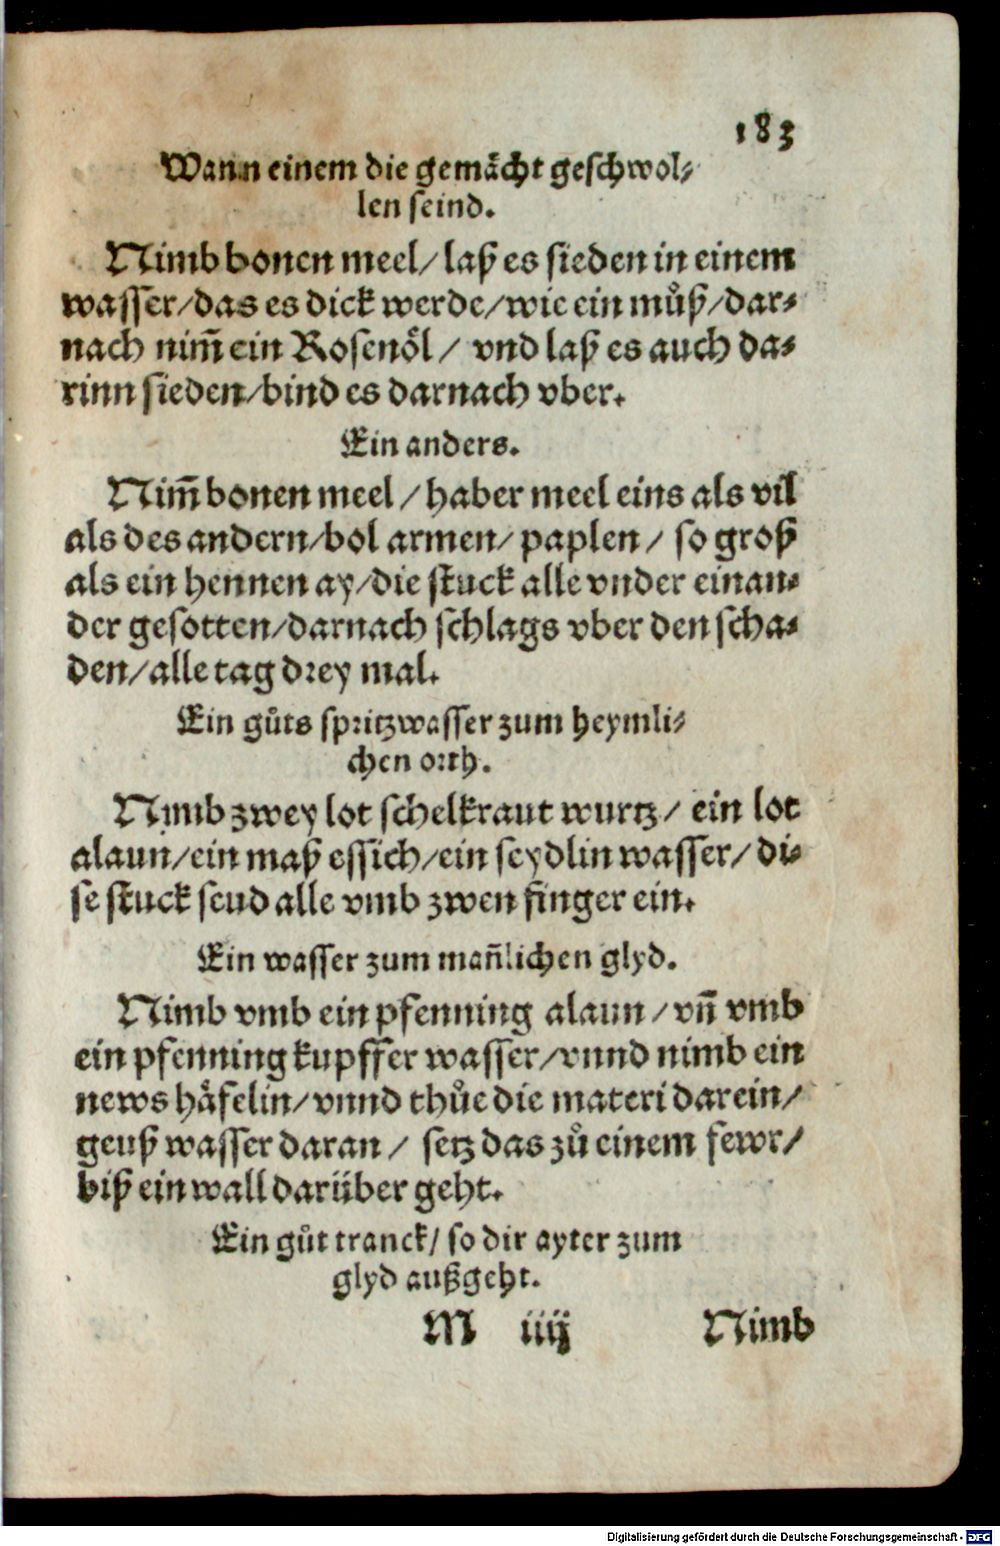 183
Wann einem die gemaͤcht geschwol⸗
len seind.
Nimb bonen meel/ laß es sieden in einem
wasser/das es dick werde/wie ein můß/dar⸗
nach nim̄ ein Rosenoͤl/ vnd laß es auch da⸗
rinn sieden/bind es darnach vber.
Ein anders.
Nim̄ bonen meel/haber meel eins als vil
als des andern/bol armen/ paplen/ so groß
als ein hennen ay/die stuck alle vnder einan⸗
der gesotten/darnach schlags vber den scha⸗
den/alle tag drey mal.
Ein gůts spritzwasser zum heymli⸗
chen orth.
Nimb zwey lot schelkraut wurtz/ ein lot
alaun/ein maß essich/ein seydlin wasser/ di⸗
se stuck seud alle vmb zwen finger ein.
Ein wasser zum mañlichen glyd.
Nimb vmb ein pfenning alaun/vñ vmb
ein pfenning kupffer wasser/vnnd nimb ein
news haͤfelin/vnnd thůe die materi darein/
geuß wasser daran/ setz das zů einem fewr/
biß ein wall darüber geht.
Ein gůt tranck/ so dir ayter zum
glyd außgeht.
M iiij Nimb
Digitalisierung gefördert durch die Deutsche Forschungsgemeinschaft - DFG